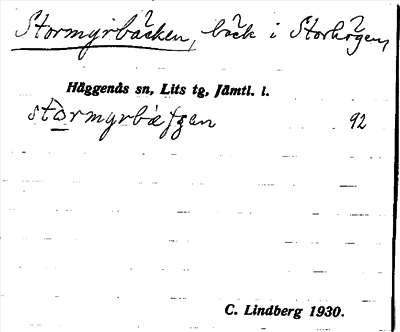 Stormyrbäcken, bäck i Storhögen,
Häggenås sn, Lits tg, Jämtl. l.
stormyrbæʃʒen 92
C. Lindberg 1930.